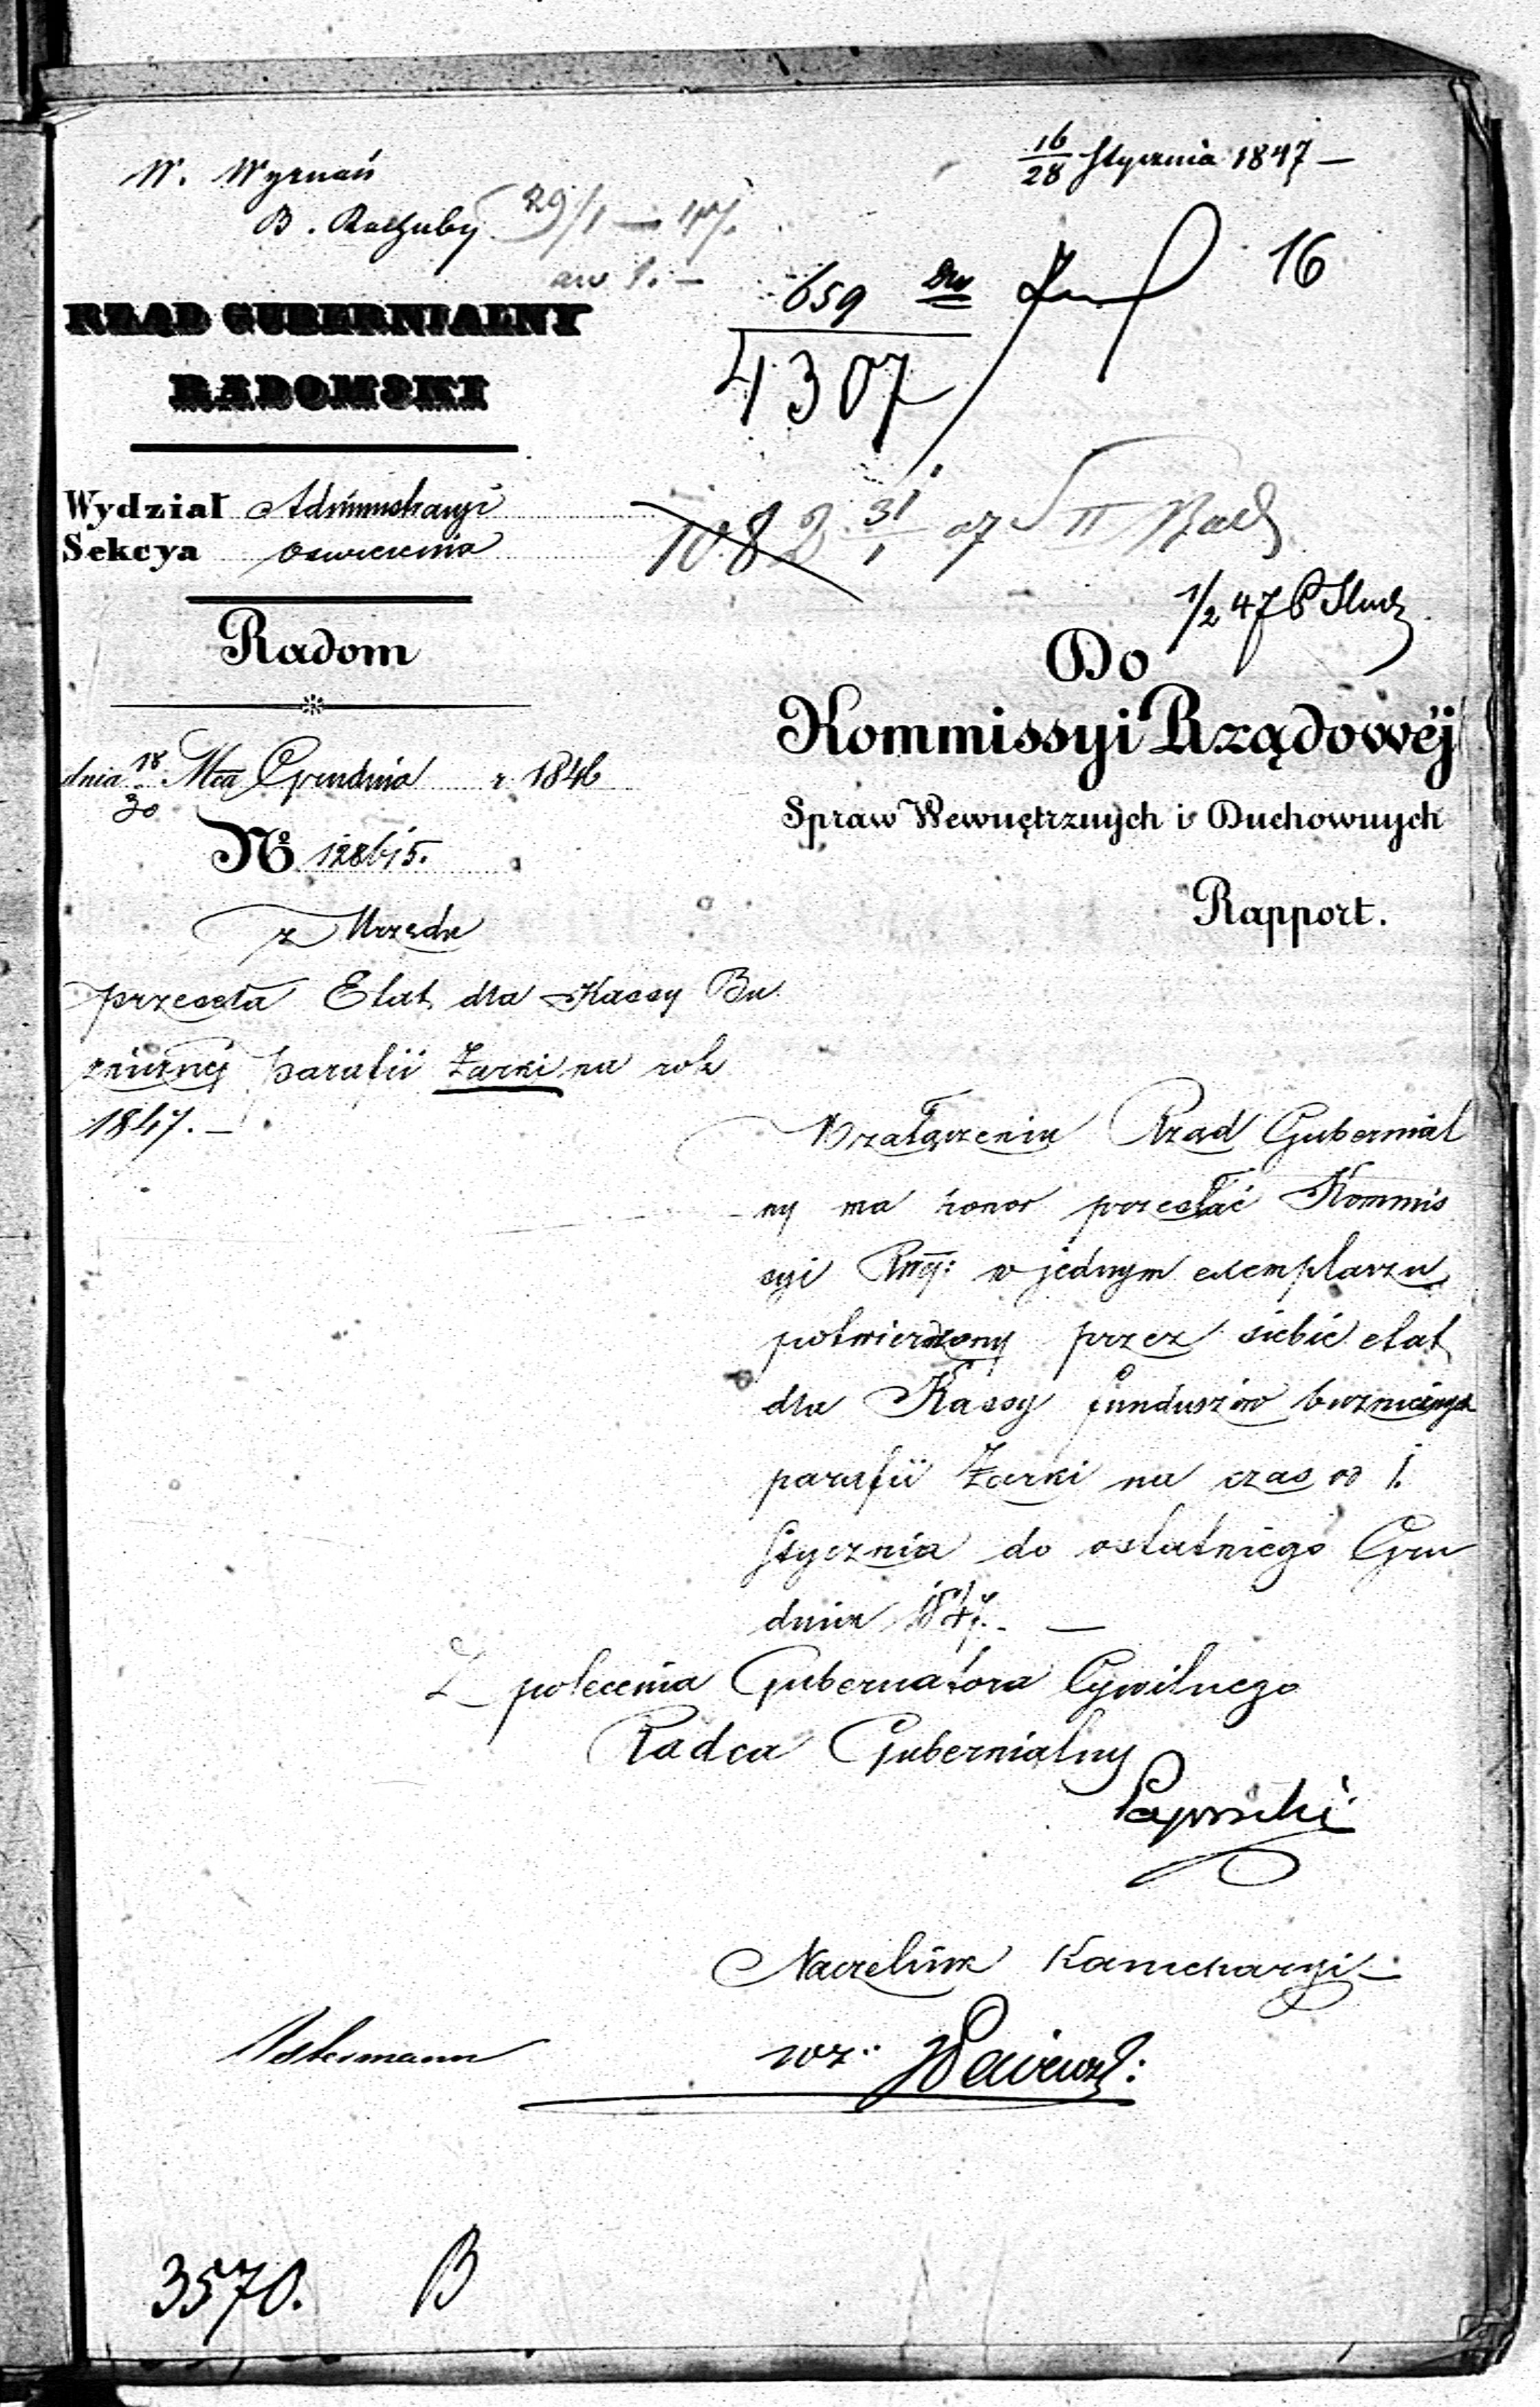 16/28 Stycznia 1847 —
W. Wyznań
B. Rachuby 29/1 — 47.
16
659
4307
RZĄD GUBERNIALNY
RADOMSKI
Wydział Administracyi
Sekcya Oswiecenia
1082 31/1 47 II
1/2 47
Radom
Do
Kommissyi Rządowéj
Spraw Wewnętrznych i Duchownych
Rapport.
dnia 18/30 Mca Grudnia r. 1846
No 128615.
z Urzędu
przesyła Etat dla Kassy Bu
zniczney parafii Zarki na rok
1847. —
W załączeniu Rząd Gubernial
ny ma honor przesłać Kommis
syi Rząj: w jednym exemplarzu
potwierdzony przez siebie etat
dla Kassy funduszów buzniczych
parafii Zarki na czas od 1.
Stycznia do ostatniego Gru
dnia 1847. —
Z polecenia Gubernatora Cywilnego
Radca Gubernialny
Naczelnik Kancellaryi
wz:
3570. B